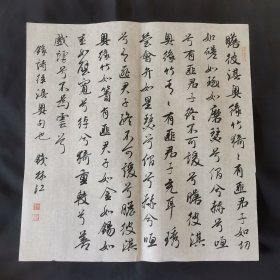 瞻彼淇奥緑竹猗〻有匪君子如切
如磋如琢如磨瑟兮僩兮赫兮咺
兮有匪君子终不可諼兮瞻彼淇
奥緑竹青〻有匪君子充耳琇
瑩會弁如星瑟兮僩兮赫兮咺
兮有匪君子终不可諼兮瞻彼淇
奥緑竹如簀有匪君子如金如錫
如圭如璧寬兮綽兮猗重較兮善
戲謔兮不為虐兮
録詩經淇奥句也 江